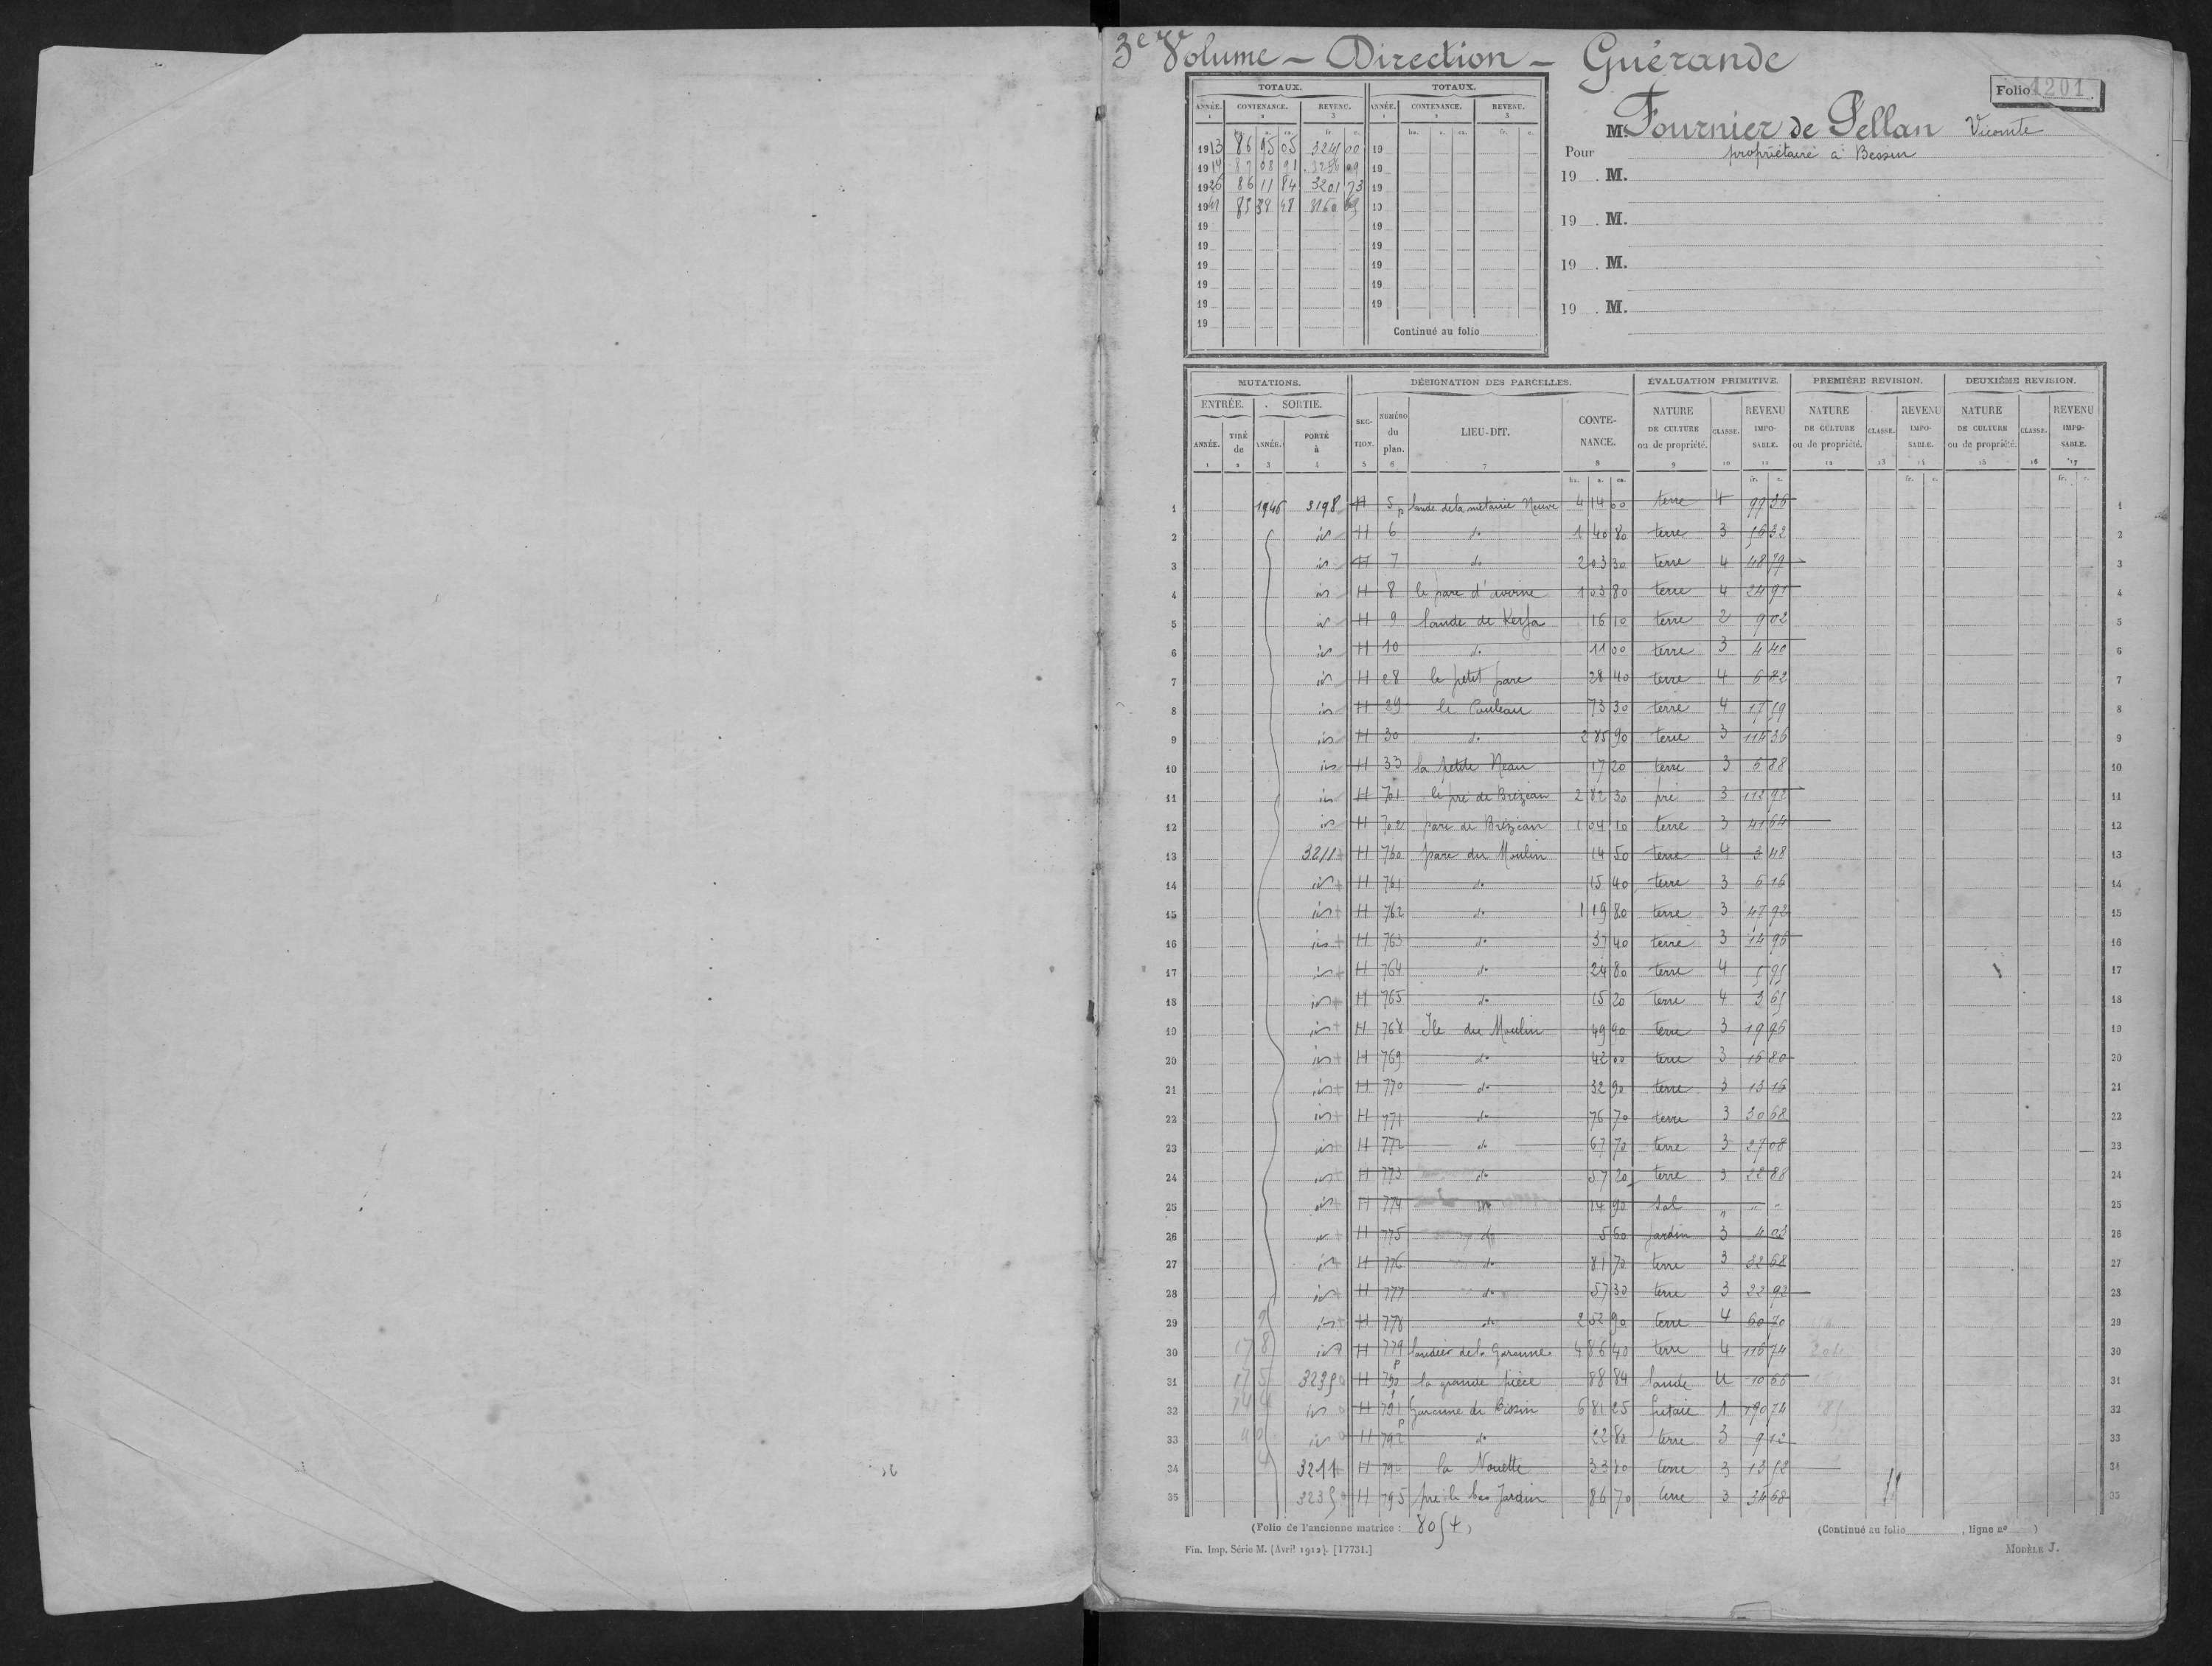 3e Volume - Direction - Guérande
Folio 1201
TOTAUX. TOTAUX.
ANNÉE. CONTENANCE. REVENU. ANNÉE. CONTENANCE. REVENU.
1 2 3 1 2 3
ha. a. ca. fr. c. ha. a. ca. fr. c.
1913 86 95 05 3241 00 19
1914 87 08 91 3256 09 19
1926 86 11 84 3201 73 19
1941 85 39 48 3160 19
19 19
19 19
19 19
19 19
19 19
19 Continué au folio
Pour M. Fournier de Pellan Vicomte
propriétaire à Bessin
19 . M.
19 . M.
19 . M.
19 . M.
MUTATIONS. DÉSIGNATION DES PARCELLES. ÉVALUATION PRIMITIVE. PREMIÈRE REVISION. DEUXIÈME REVISION.
ENTRÉE. SORTIE.
ANNÉE. TIRÉ de ANNÉE. PORTÉ à SECTION. NUMÉRO du plan. LIEU-DIT. CONTENANCE. NATURE DE CULTURE ou de propriété. CLASSE. REVENU IMPOSABLE. NATURE DE CULTURE ou de propriété. CLASSE. REVENU IMPOSABLE. NATURE DE CULTURE ou de propriété. CLASSE. REVENU IMPOSABLE.
1 2 3 4 5 6 7 8 9 10 11 12 13 14 15 16 17
ha. a. ca. fr. c. fr. c. fr. c.
1 1946 3198 H 5p lande de la métairie Neuve 4 14 00 terre 4 99 36 1
2 H 6 do 1 40 80 terre 3 56 32 2
3 H 7 do 2 03 30 terre 4 48 79 3
4 H 8 le parc d'avoine 1 03 80 terre 4 24 91 4
5 H 9 lande de Kerfa 16 10 terre 2 9 02 5
6 H 10 do 11 00 terre 3 4 40 6
7 H 28 le petit parc 28 40 terre 4 6 82 7
8 H 29 le Pouleau 73 30 terre 4 17 59 8
9 H 30 do 2 85 90 terre 3 114 36 9
10 H 33 la petite Neau 17 20 terre 3 6 88 10
11 H 701 le pré de Brézéan 2 82 30 pré 3 112 92 11
12 H 702 parc de Brézéan 1 04 10 terre 3 41 64 12
13 3211 H 760 parc du Moulin 14 50 terre 4 3 48 13
14 H 761 do 15 40 terre 3 6 16 14
15 H 762 do 1 19 80 terre 3 47 92 15
16 H 763 do 37 40 terre 3 14 96 16
17 H 764 do 24 80 terre 4 5 95 17
18 H 765 do 15 20 terre 4 3 65 18
19 H 768 Ile du Moulin 49 90 terre 3 19 96 19
20 H 769 do 42 00 terre 3 16 80 20
21 H 770 do 32 90 terre 3 13 16 21
22 H 771 do 76 70 terre 3 30 68 22
23 H 772 do 67 70 terre 3 27 08 23
24 H 773 do 57 20 terre 3 22 88 24
25 H 774 14 90 sol " " " 25
26 H 775 do 5 60 jardin 3 4 03 26
27 H 776 do 81 70 terre 3 32 68 27
28 H 777 do 57 30 terre 3 22 92 28
29 H 778 do 2 52 90 terre 4 60 70 29
30 H 779p 4 86 40 terre 4 116 74 30
31 3235 H 790 la grande pièce 88 84 lande U 10 66 31
32 H 791p Garenne de Bissin 6 81 25 futaie 1 190 74 32
33 H 792 do 22 80 terre 3 9 12 33
34 3211 H la Nouette 33 80 terre 3 13 52 34
35 3235 H 795 pré le bas Jardin 86 70 terre 3 34 68 35
(Folio de l'ancienne matrice : 8054)
(Continué au folio , ligne nº )
Fin. Imp. Série M. (Avril 1912). [17731.]
MODÈLE J.